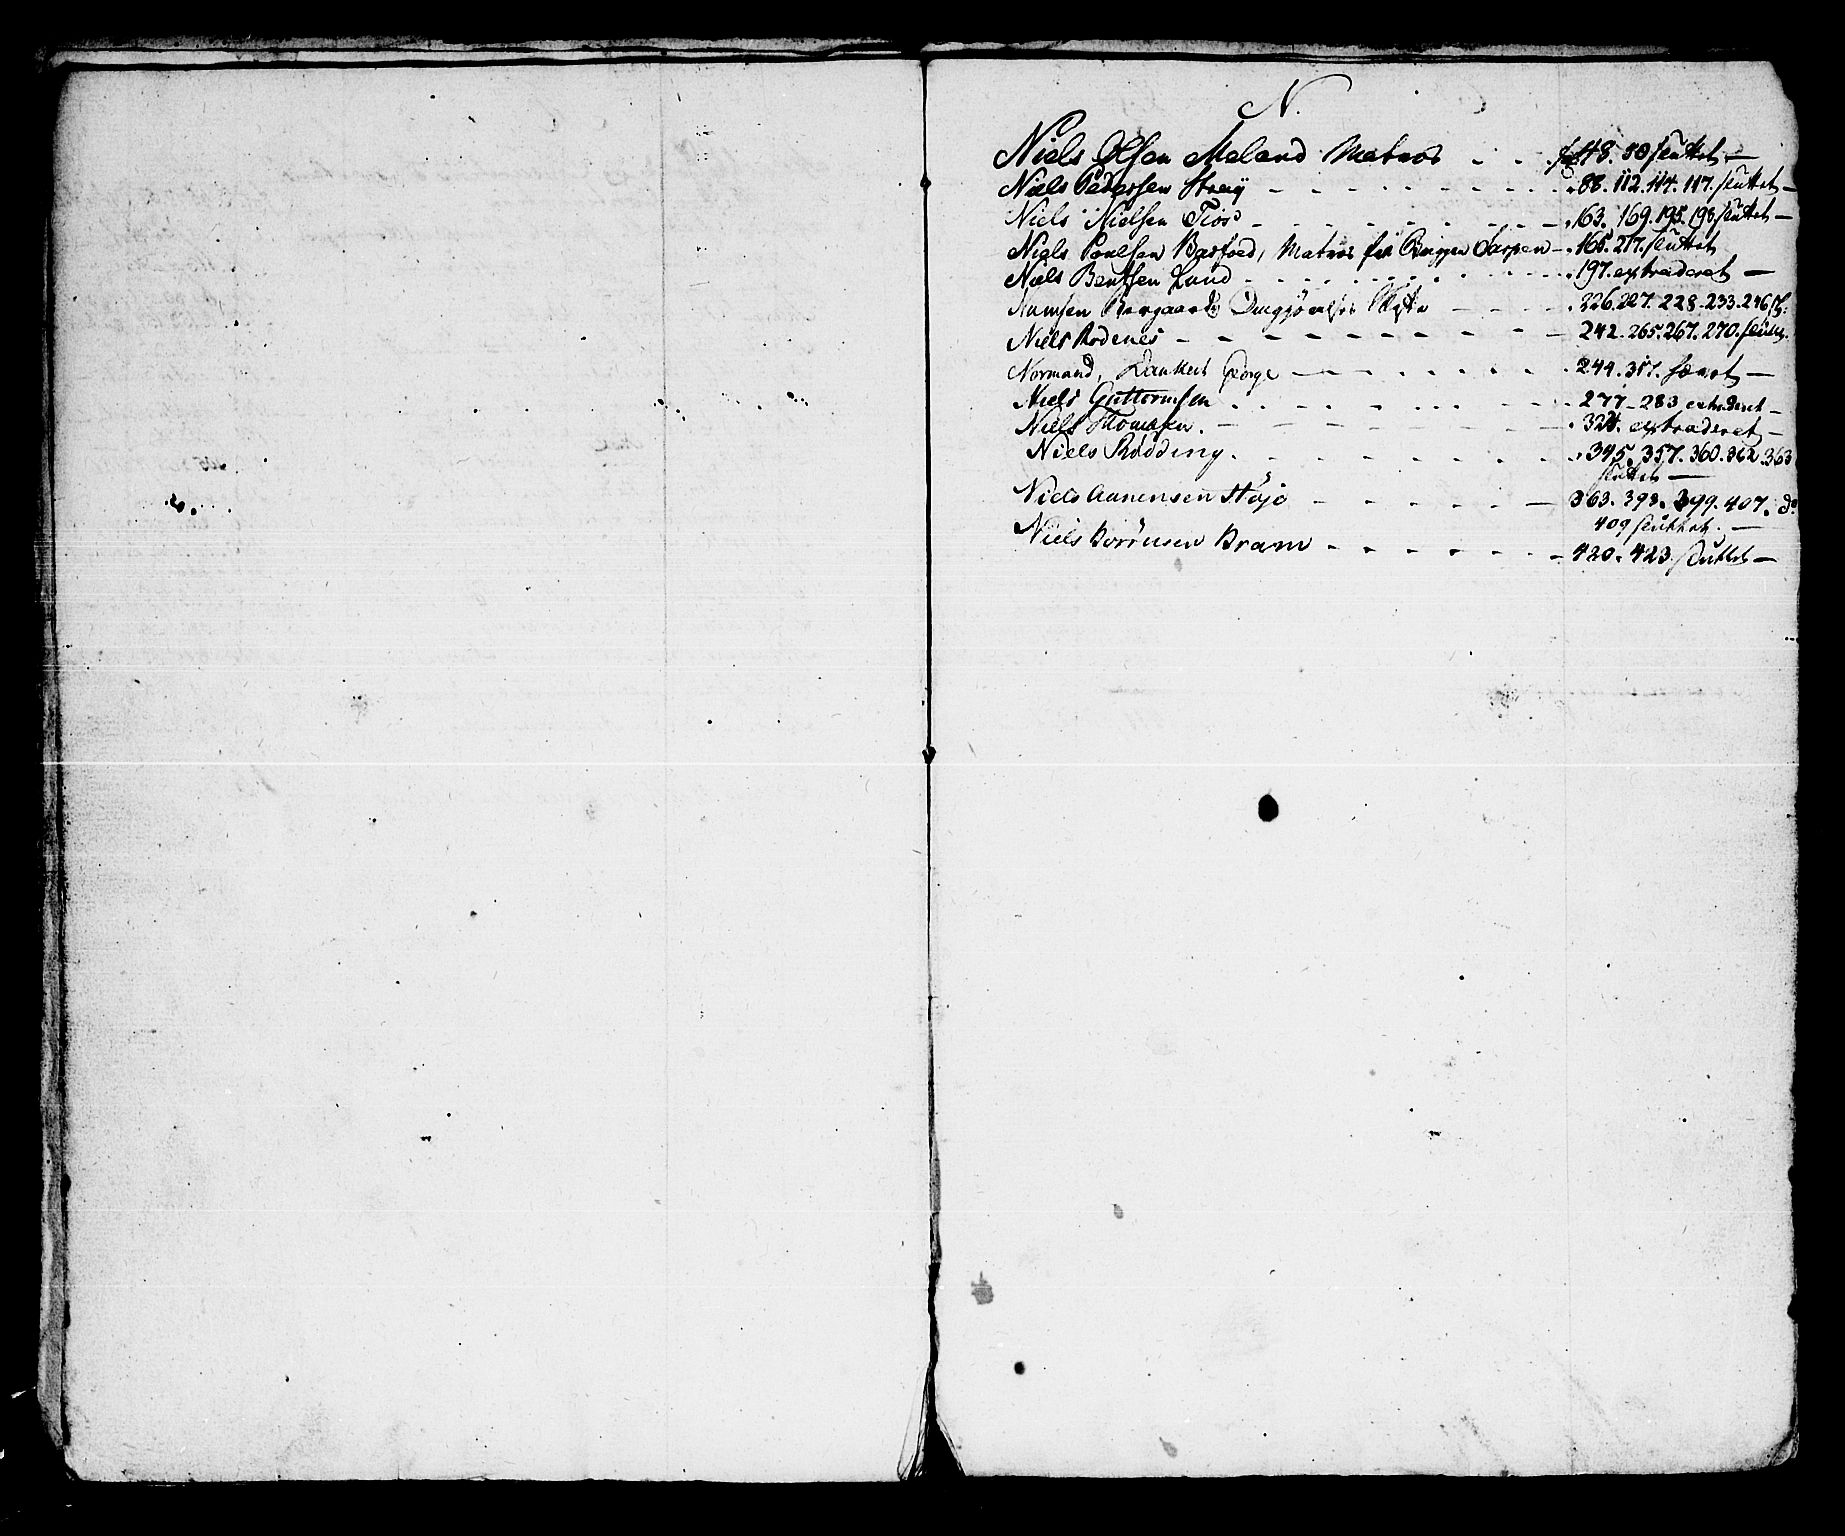 N.
Niels Olsen Meland Matros fol 48. 50 sluttet
Niels Pedersen Stray 88. 112. 114. 117. sluttet
Niels Nielsen Tiøs 163. 169. 195. 198 sluttet
Niels Poulsen Basfoed, Matros fra Briggen Sarpen 165. 217. sluttet
Niels Bentsen Lund 197. extraderet
Numsen Borgaards 226. 227. 228. 233. 246 sl:
Niels Rodenes 242. 265. 267. 270. slutt.
Normand, Lankert George 244. 317. hævet
Niels Guttormsen 277. 283 extraderet
Niels Thomasen. 324. extraderet
Niels Rødding. 345. 357. 360. 362. 363
sluttet
Niels Aanensen Høje 363. 393. 399. 407. do
409 sluttet.
Niels Sørensen Bram 420. 423. sluttet